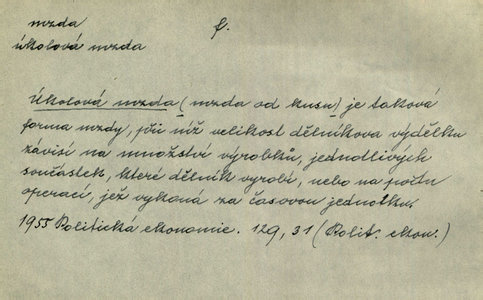 mzda
f.
úkolová mzda
Úkolová mzda (mzda od kusu) je taková
forma mzdy, při níž velikost dělníkova výdělku
závisí na množství výrobků, jednotlivých
součástek, které dělník vyrobí, nebo na počtu
operací, jež vykoná za časovou jednotku.
1955 Politická ekonomie. 129, 31 (Polit. ekon.)